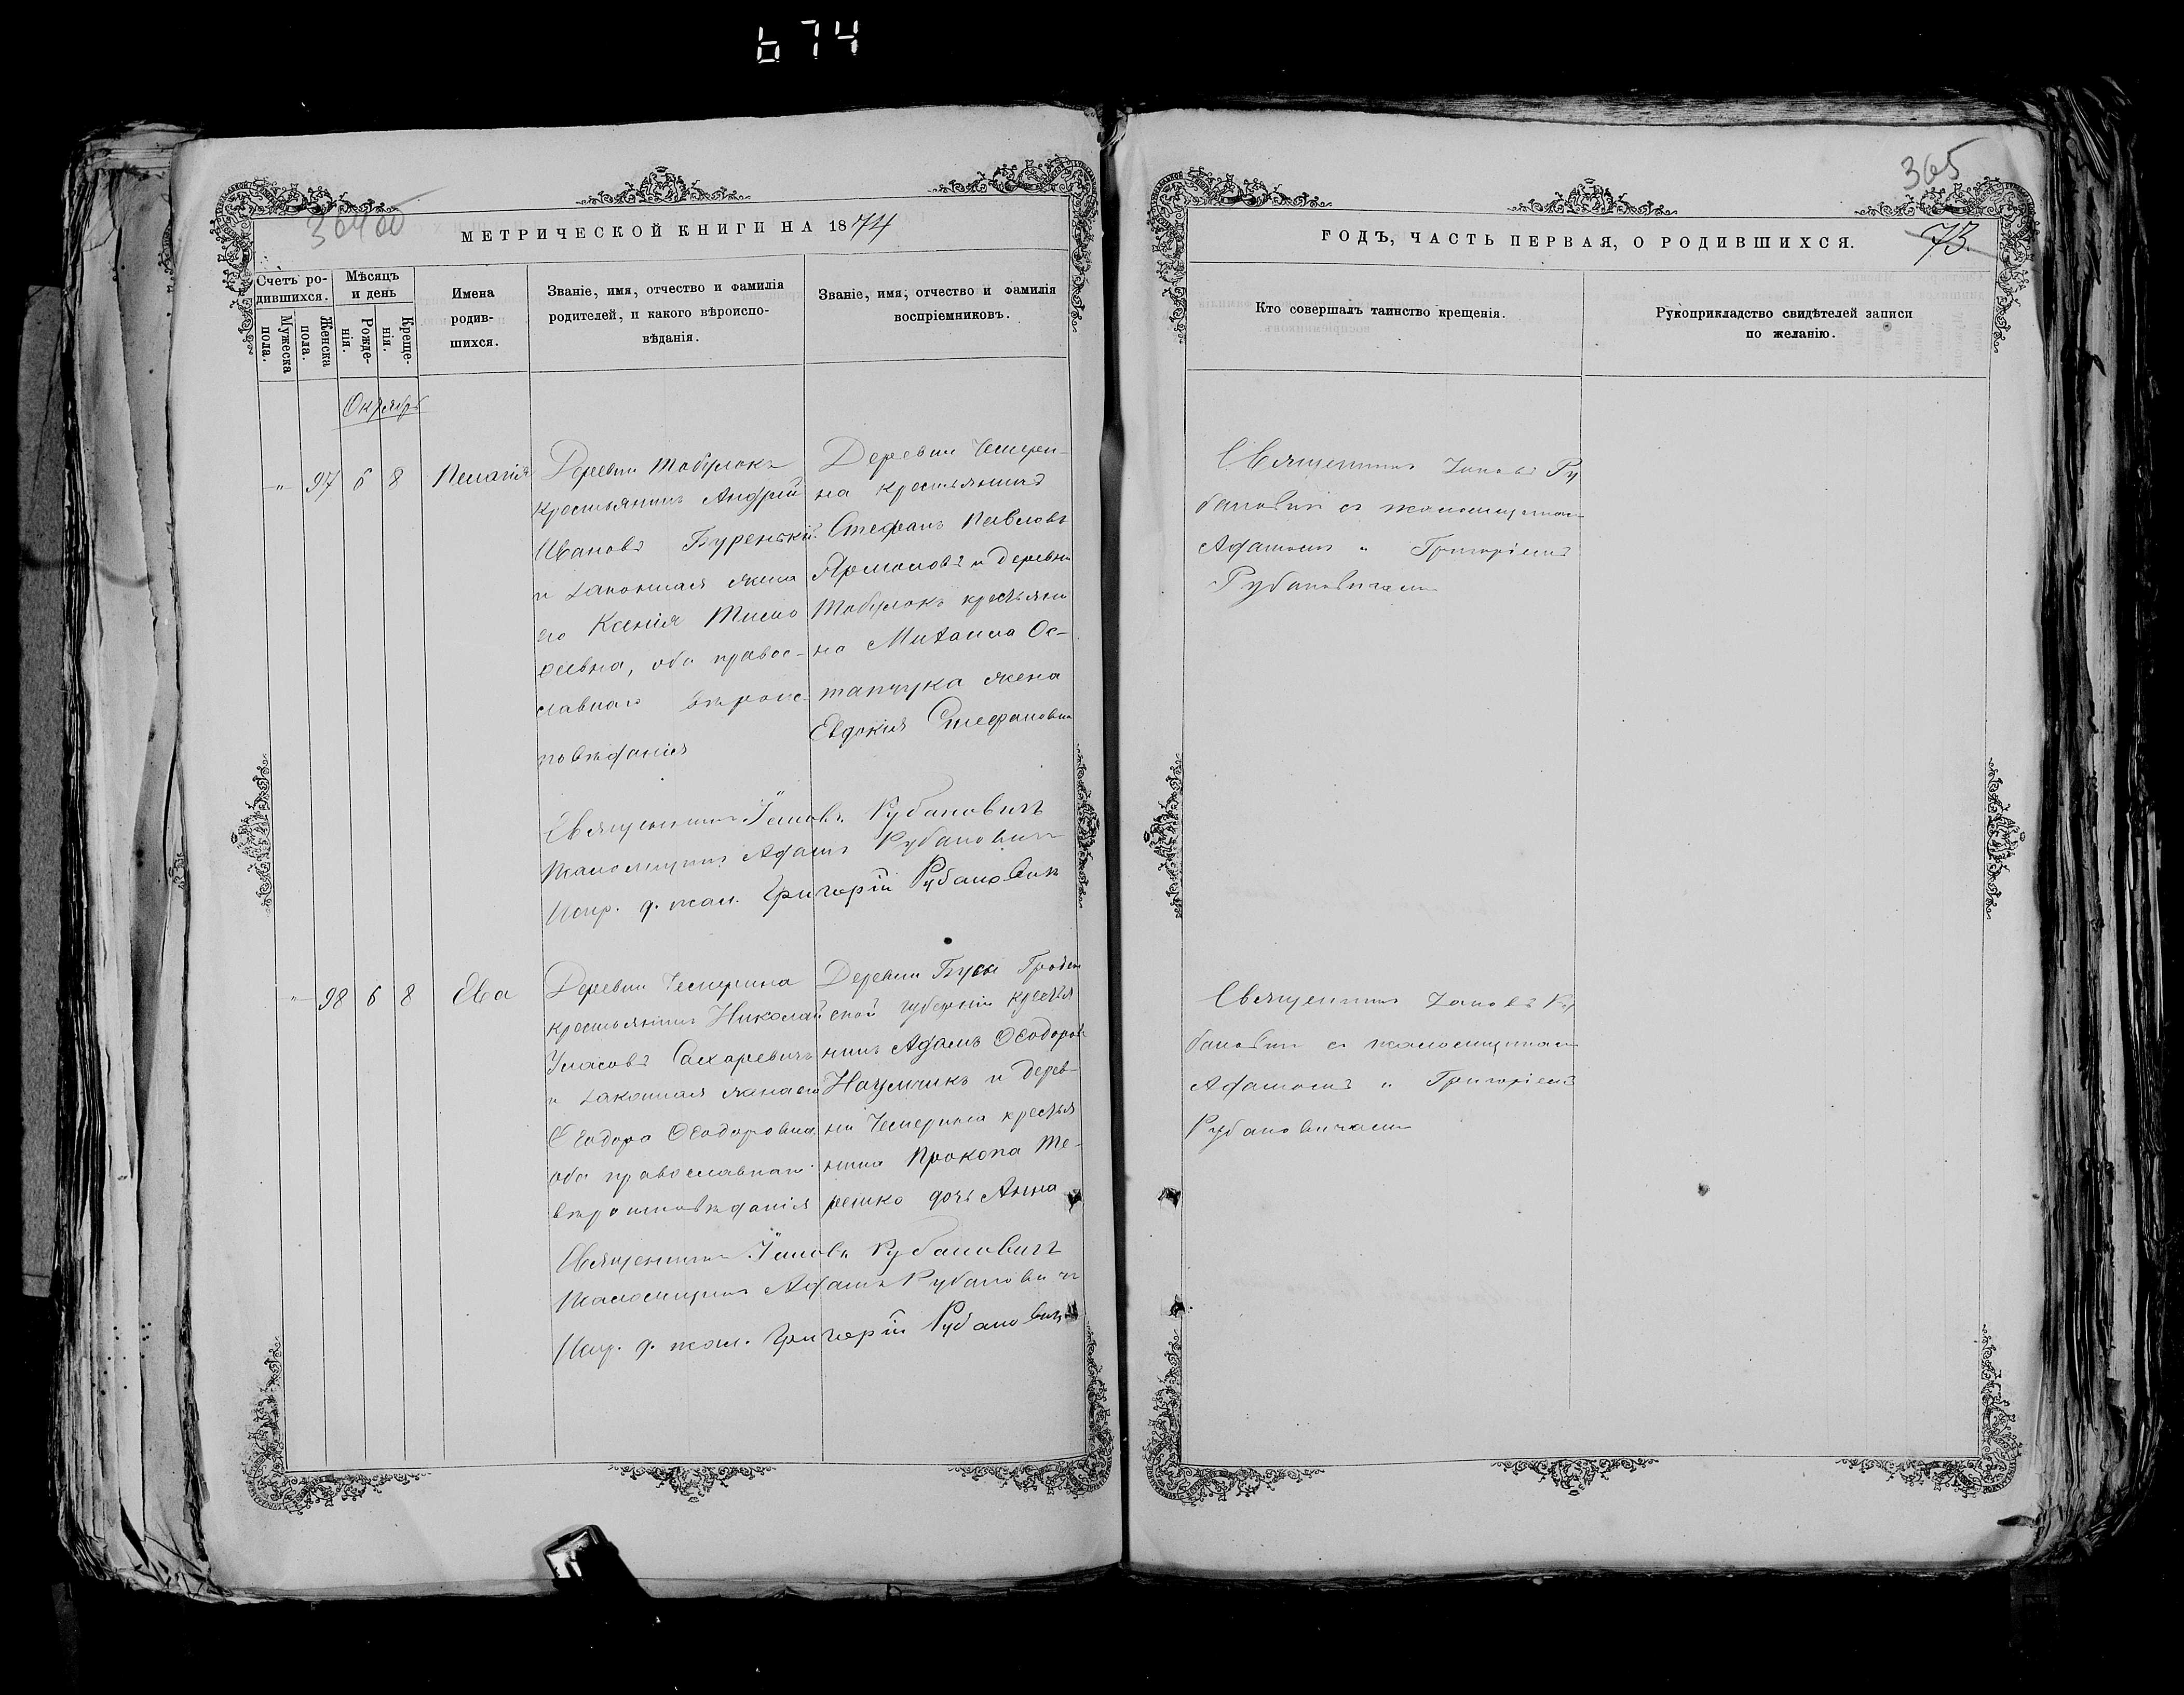 674
36400
МЕТРИЧЕСКОЙ КНИГИ НА 1874
Счетъ ро-
дившихся.
Мужеска
пола.
Женска
пола.
Мѣсяцъ
и день
Рожде-
нія.
Креще-
нія.
Имена
родив-
шихся.
Званіе, имя, отчество и фамилія
родителей, и какого вѣроиспо-
вѣданія.
Званіе, имя, отчество и фамилія
воспріемниковъ.
Октябрь
-"- 97 6 8 Пелагія
Деревни Табулокъ
крестьянинъ Андрей
Ивановъ Буренскій
и законная жена
его Ксенія Тимо
феевна, оба правос-
славнаго вѣроис-
повѣданія
Деревни Чемери-
на крестьянинъ
Стефанъ Павловъ
Ярмоловъ и деревни
Табулокъ крестьяни
на Михаила Ос-
тапчука жена
Евдокия Стефановна
Священникъ Іаковъ Рубановичъ
Псаломщикъ Адамъ Рубановичъ
Испр. д. псал. Григорій Рубановичъ
-"- 98 6 8 Ева
Деревни Чемерина
крестьянинъ Николай
Уласовъ Сахаревичъ
и законная жена его
Ѳеодора Ѳеодоровна
оба православнаго
вѣроисповѣданія
Деревни Бусы Гроден
ской губерніи крестья
нинъ Адамъ Ѳеодоровъ
Наумчикъ и дерев-
ни Чемерина крестья
нина Прокопа Те-
решко дочь Анна
Священникъ Іаковъ Рубановичъ
Псаломщикъ Адамъ Рубановичъ
Испр. д. псал. Григорій Рубановичъ
365
73.
ГОДЪ, ЧАСТЬ ПЕРВАЯ, О РОДИВШИХСЯ.
Кто совершалъ таинство крещенія.
Рукоприкладство свидѣтелей записи
по желанію.
Священникъ Іаковъ Ру
бановичъ съ псаломщикомъ
Адамомъ и Григоріемъ
Рубановичами
Священникъ Іаковъ Ру
бановичъ съ псаломщикомъ
Адамомъ и Григоріемъ
Рубановичами